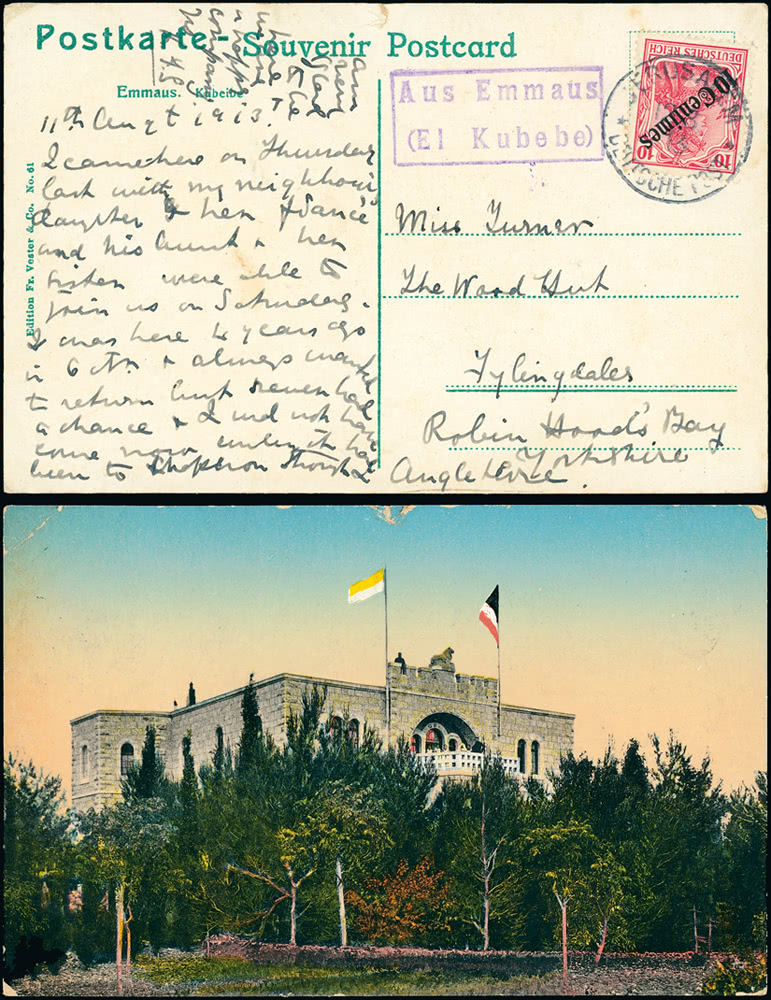 Postkarte - Souvenir Postcard
Emmaus. Kubeibe
Edition Fr. Vester & Co. No. 61
11th Augt 1913.
I came here on Thursday
last with my neighbour's
daughter & her fiancé
and his Aunt & her
sister were able to
join us on Saturday.
I was here 4 years ago
in Octr & always wanted
to return but never had
a chance & I wd not have
come now unless it had
been to chaperon though I
am
very
glad
to be
where
a happy
company
Aus Emmaus
(El Kubebe)
DEUTSCHES REICH
10 Centimes
10 10
JERUSALEM
DEUTSCHE POST
Miss Turner
The Wood Hut
Fylingdales
Robin Hood's Bay
Yorkshire
Angleterre.